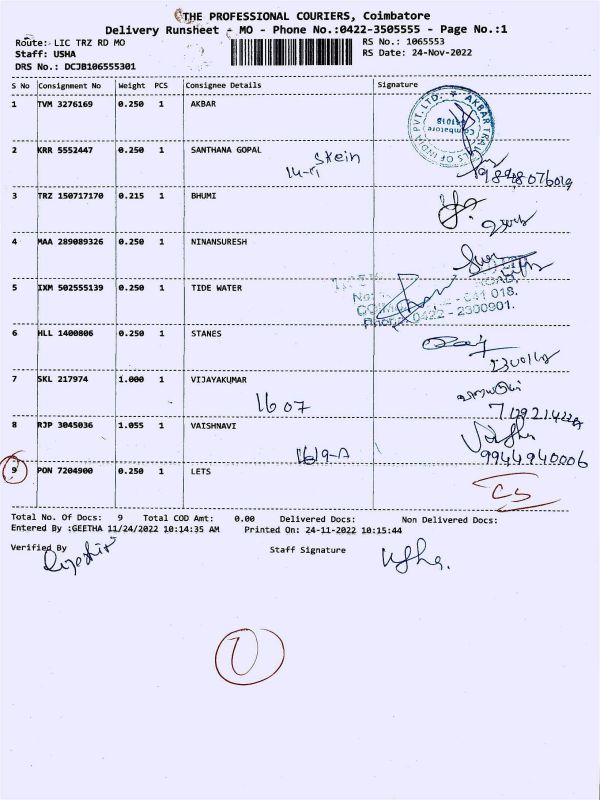 THE PROFESSIONAL COURIERS, Coimbatore
Delivery Runsheet - MO - Phone No.:0422-3505555 - Page No.:1
Route: LIC TRZ RD MO RS No.: 1065553
Staff: USHA RS Date: 24-Nov-2022
DRS No.: DCJB106555301
S No Consignment No Weight PCS Consignee Details Signature
1 TVM 3276169 0.250 1 AKBAR
AKBAR TRAVELS OF INDIA PVT. LTD. Coimbatore
2 KRR 5552447 0.250 1 SANTHANA GOPAL
3 TRZ 150717170 0.215 1 BHUMI
4 MAA 289089326 0.250 1 NINANSURESH
5 IXM 502555139 0.250 1 TIDE WATER
ROAD,
- 641 018.
Phone: 0422 - 2300901.
6 HLL 1400806 0.250 1 STANES
7 SKL 217974 1.000 1 VIJAYAKUMAR
1607
8 RJP 3045036 1.055 1 VAISHNAVI
1619-A
9944940006
9 PON 7204900 0.250 1 LETS
CS
Total No. Of Docs: 9 Total COD Amt: 0.00 Delivered Docs: Non Delivered Docs:
Entered By :GEETHA 11/24/2022 10:14:35 AM Printed On: 24-11-2022 10:15:44
Verified By Staff Signature
Usha.